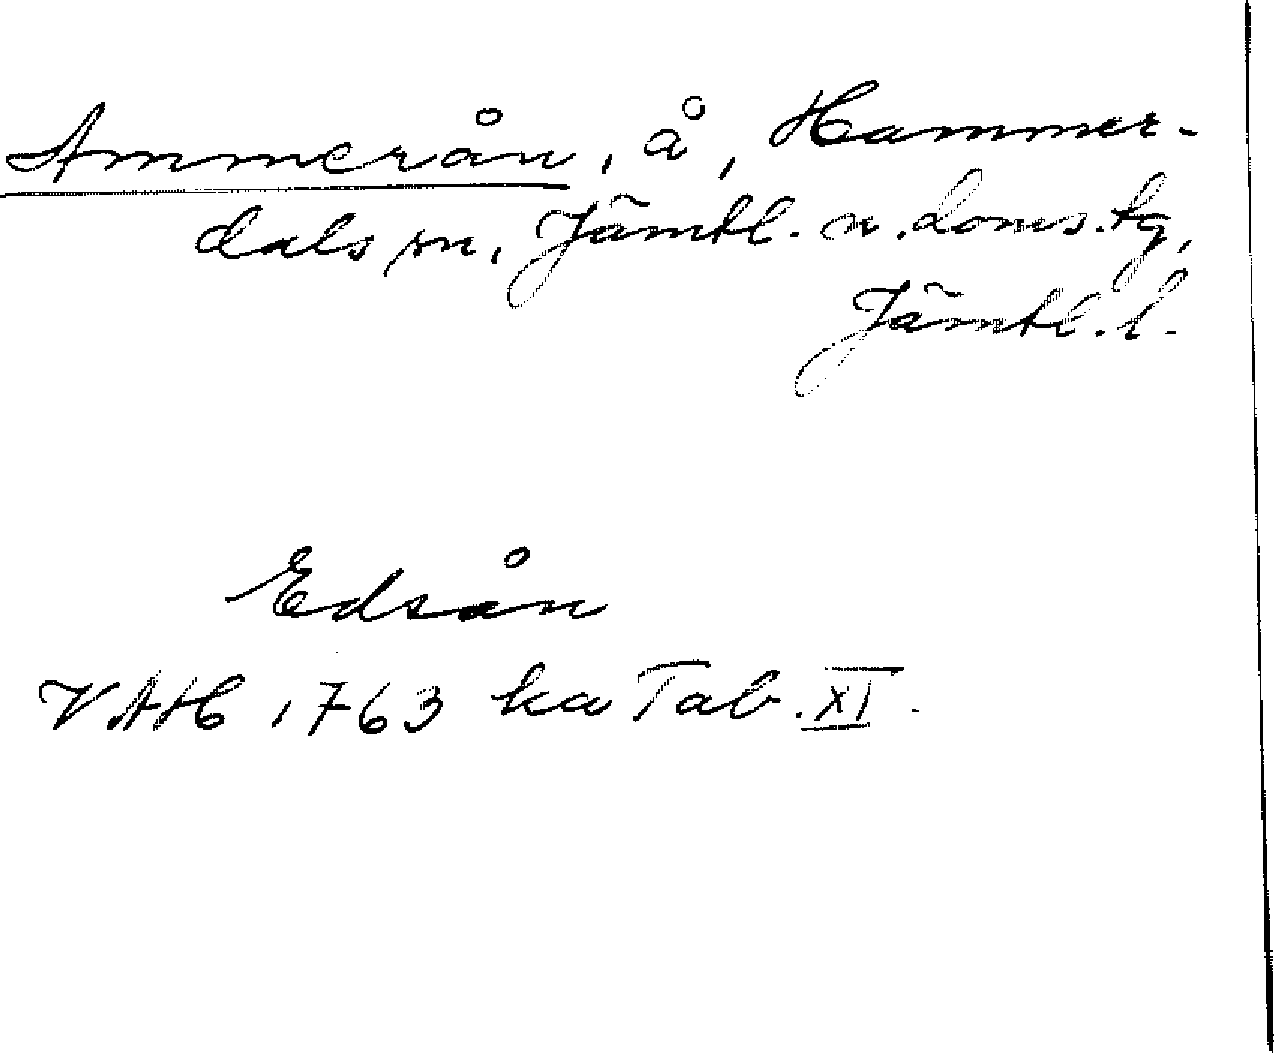 Ammerån, å, Hammer-
dals sn, Jämtl. n. doms. tg,
Jämtl. l.
Edsån
VAH 1763 ka Tab. XI.